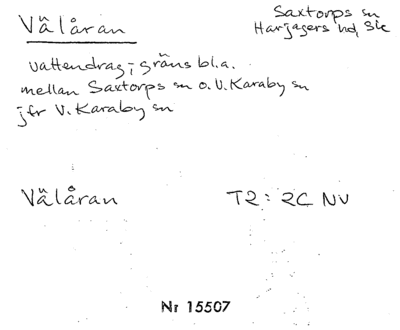 Välåran
Saxtorps sn
Harjagers hd, Sk
vattendrag; gräns bl.a.
mellan Saxtorps sn o. V. Karaby sn
jfr V. Karaby sn
Välåran T2: 2C NV
Nr 15507